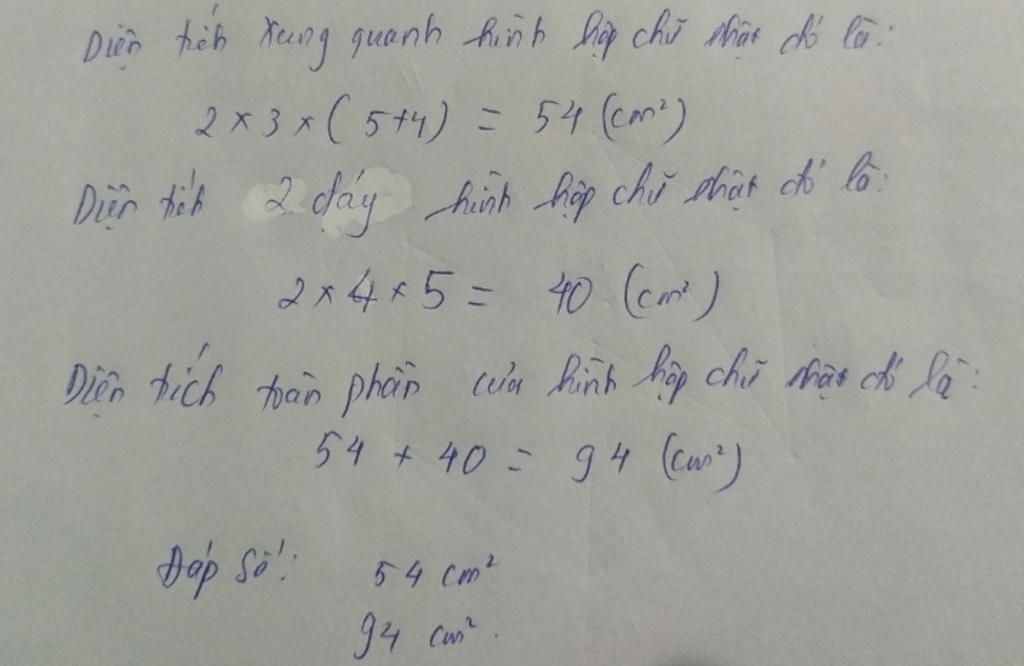 Diện tích xung quanh hình hộp chữ nhật đó là:
2 × 3 × ( 5+4) = 54 (cm²)
Diện tích 2 đáy hình hộp chữ nhật đó là:
2 × 4 × 5 = 40 (cm²)
Diện tích toàn phần của hình hộp chữ nhật đó là:
54 + 40 = 94 (cm²)
Đáp số: 54 cm²
94 cm².